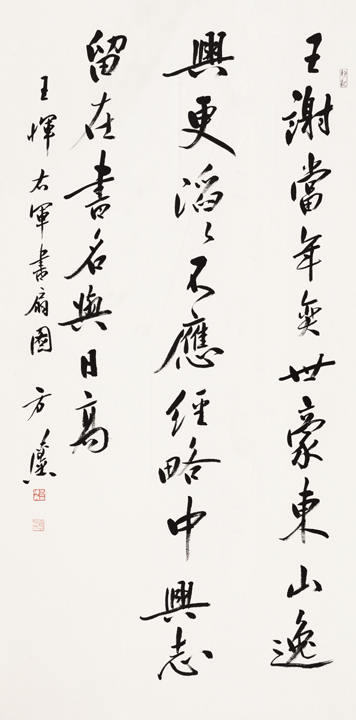 王謝當年奕世豪東山逸
興更滔々不應經略中興志
留在書名與日高
王惲右軍書扇圖 方